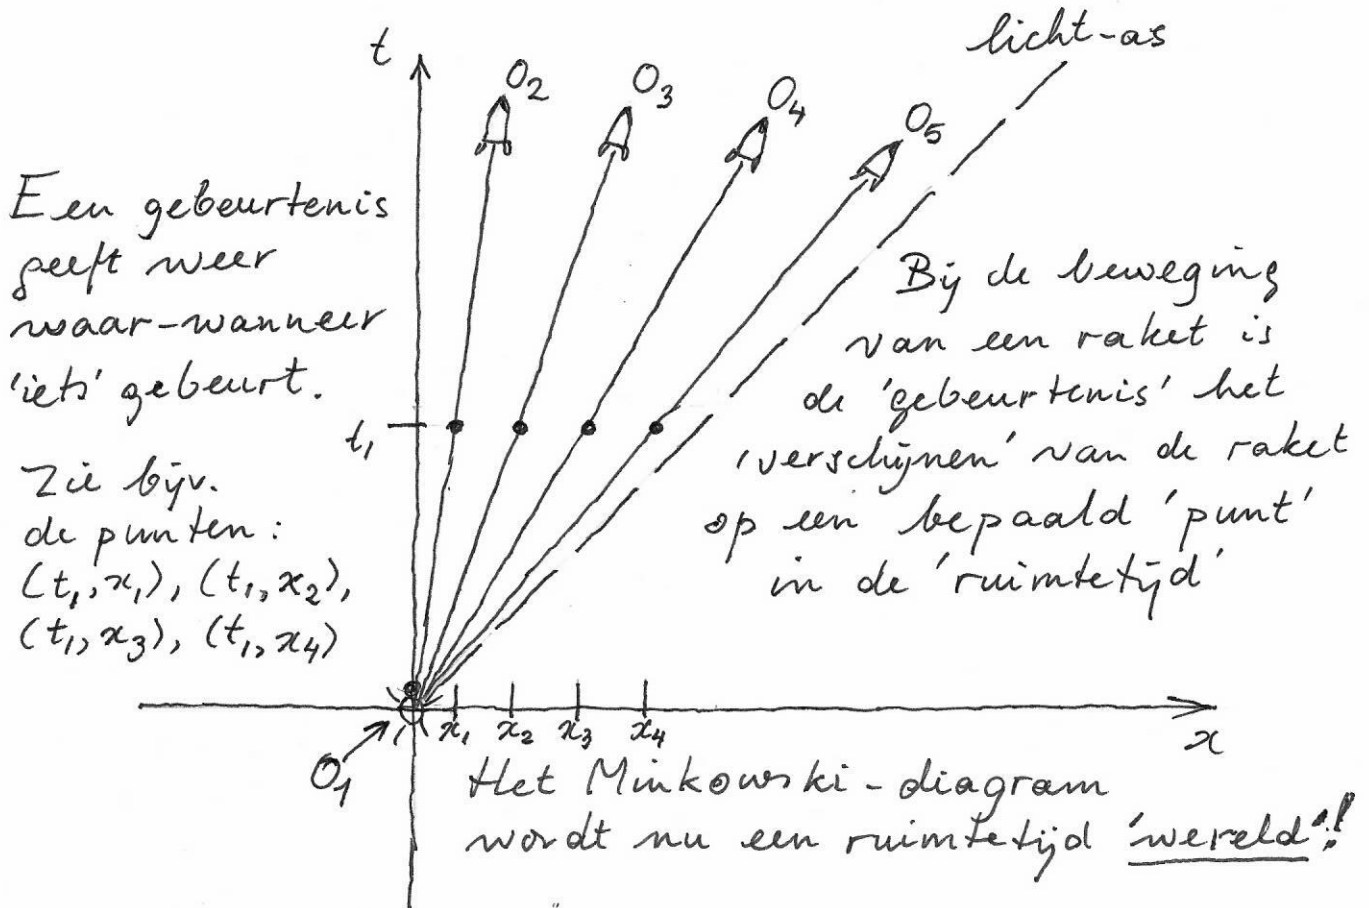 licht-as
t
O2
O3
O4
O5
Een gebeurtenis
geeft weer
waar-wanneer
'iets' gebeurt.
Zie bijv.
de punten:
(t1,x1), (t1,x2),
(t1,x3), (t1,x4)
Bij de beweging
van een raket is
de 'gebeurtenis' het
'verschijnen' van de raket
op een bepaald 'punt'
in de 'ruimtetijd'
t1
x1 x2 x3 x4
x
O1
Het Minkowski-diagram
wordt nu een ruimtetijd 'wereld'!